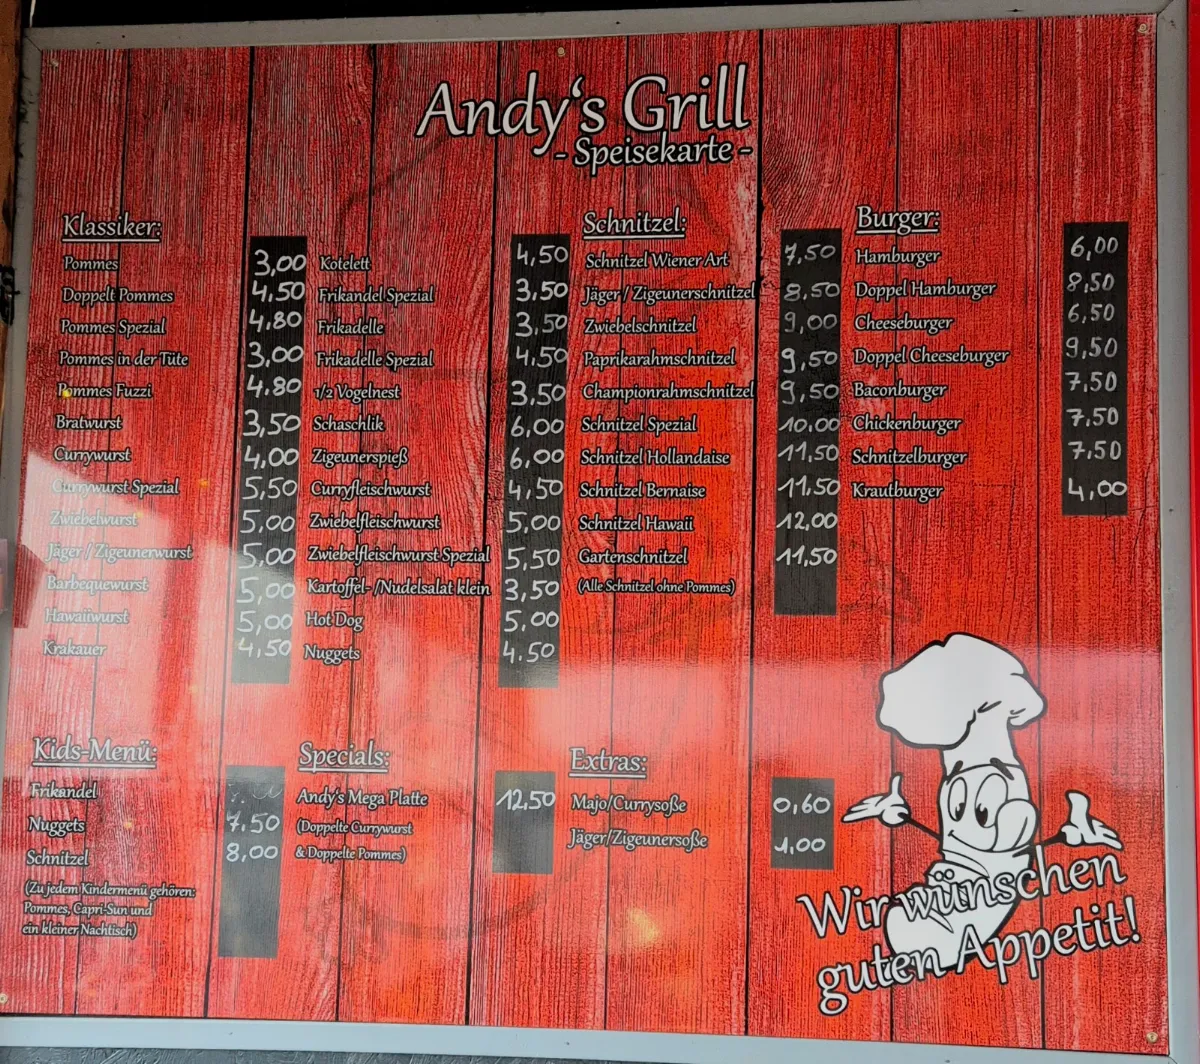 Andy's Grill
- Speisekarte -
Klassiker:
Pommes 3,00
Doppelt Pommes 4,50
Pommes Spezial 4,80
Pommes in der Tüte 3,00
Pommes Fuzzi 4.80
Bratwurst 3,50
Currywurst 4,00
Currywurst Spezial 5,50
Zwiebelwurst 5,00
Jäger / Zigeunerwurst 5,00
Barbequewurst 5,00
Hawaiiwurst 5,00
Krakauer 4,50
Kotelett 4,50
Frikandel Spezial 3,50
Frikadelle 3,50
Frikadelle Spezial 4,50
1/2 Vogelnest 3,50
Schaschlik 6,00
Zigeunerspieß 6,00
Curryfleischwurst 4,50
Zwiebelfleischwurst 5,00
Zwiebelfleischwurst Spezial 5,50
Kartoffel- /Nudelsalat klein 3,50
Hot Dog 5,00
Nuggets 4.50
Schnitzel:
Schnitzel Wiener Art 7,50
Jäger / Zigeunerschnitzel 8,50
Zwiebelschnitzel 9,00
Paprikarahmschnitzel 9,50
Championrahmschnitzel 9,50
Schnitzel Spezial 10.00
Schnitzel Hollandaise 11,50
Schnitzel Bernaise 11,50
Schnitzel Hawaii 12,00
Gartenschnitzel 11,50
(Alle Schnitzel ohne Pommes)
Burger:
Hamburger 6,00
Doppel Hamburger 8,50
Cheeseburger 6,50
Doppel Cheeseburger 9,50
Baconburger 7,50
Chickenburger 7,50
Schnitzelburger 7,50
Krautburger 4,00
Kids-Menü:
Frikandel
Nuggets 7.50
Schnitzel 8,00
(Zu jedem Kindermenü gehören:
Pommes, Capri-Sun und
ein kleiner Nachtisch)
Specials:
Andy's Mega Platte 12,50
(Doppelte Currywurst
& Doppelte Pommes)
Extras:
Majo/Currysoße 0,60
Jäger/Zigeunersoße 1,00
Wir wünschen
guten Appetit!